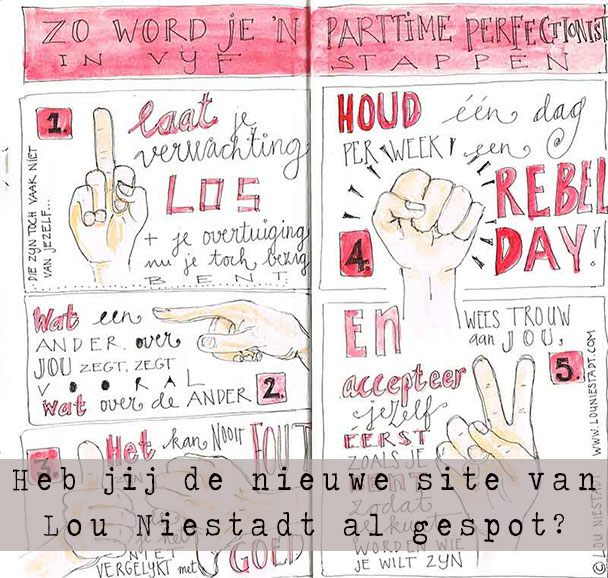 ZO WORD JE 'N PARTTIME PERFECTIONIST
IN VYF STAPPEN
1.
laat je
verwachting
LOS
+ je overtuiging
nu je toch bezig
BENT
DIE ZYN TOCH VAAK NIET
VAN JEZELF...
Wat een
ANDER over
JOU ZEGT, ZEGT
VOORAL
Wat over de ANDER
2.
3.
Het kan NOOIT FOUT
NIET
VERGELYKT met GOED
HOUD één dag
PER WEEK een
REBEL
DAY!
4.
EN
accepteer
jezelf
EERST
ZOALS JE
BENT
zodat
je kunt
WORDEN WIE
JE WILT ZYN
WEES TROUW
aan JOU,
5.
© LOU NIESTADT WWW.LOUNIESTADT.COM
Heb jij de nieuwe site van
Lou Niestadt al gespot?